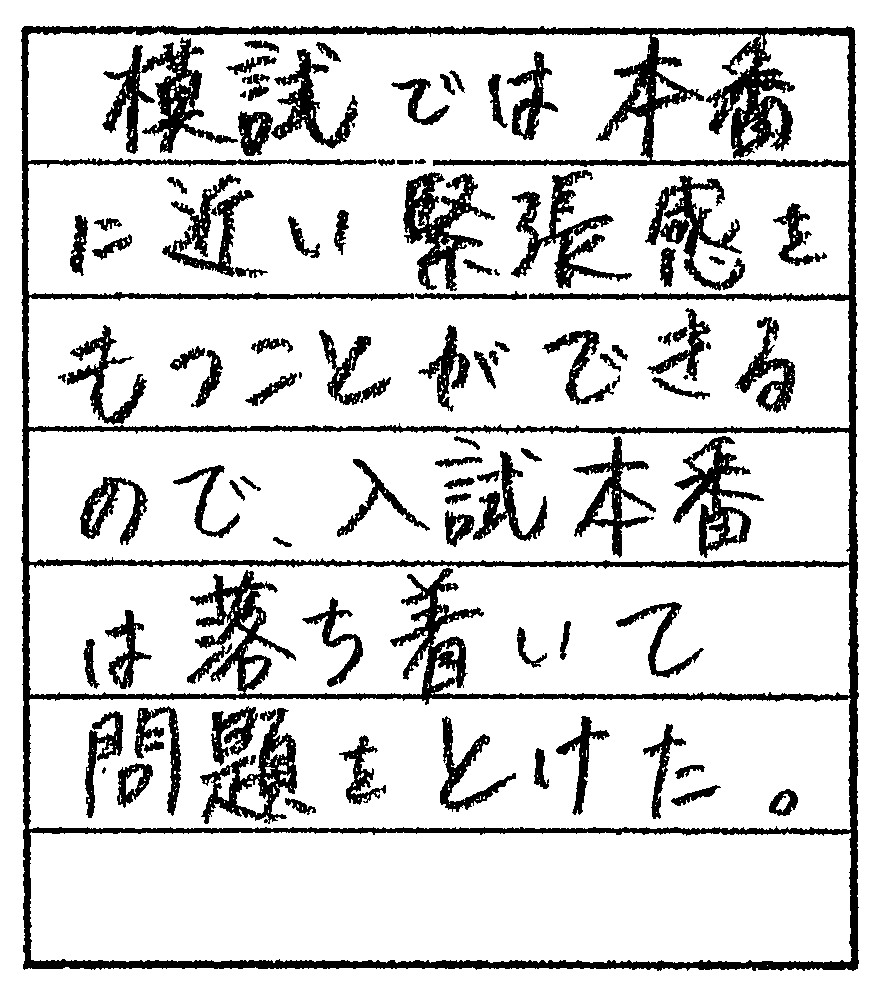 模試では本番
に近い緊張感を
もつことができる
ので、入試本番
は落ち着いて
問題をとけた。